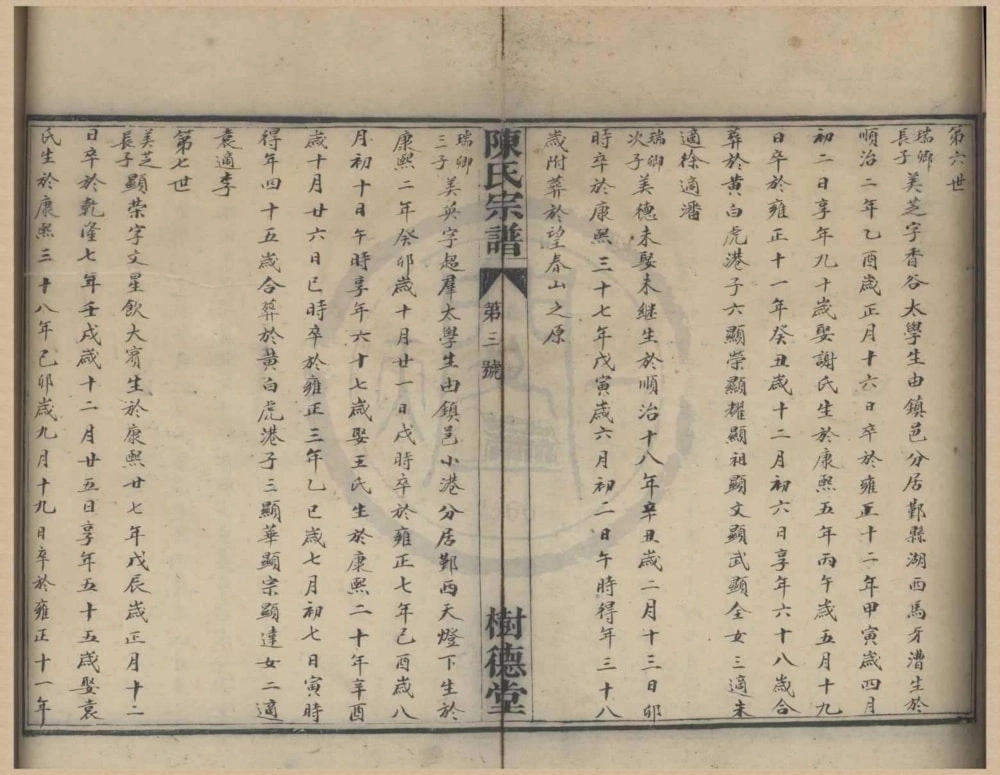 第六世
瑞卿長子美芝字香谷太學生由鎮邑分居鄞縣湖西馬牙漕生於
順治二年乙酉歲正月十六日卒於雍正十二年甲寅歲四月
初二日享年九十歲娶謝氏生於康熙五年丙午歲五月十九
日卒於雍正十一年癸丑歲十二月初六日享年六十八歲合
葬於黃白虎港子六顯榮顯耀顯祖顯文顯武顯全女三適朱
適徐適潘
瑞卿次子美德未娶未繼生於順治十八年辛丑歲二月十三日卯
時卒於康熙三十七年戊寅歲六月初二日午時得年三十八
歲附葬於望春山之原
陳氏宗譜
第三號
樹德堂
瑞卿三子美英字超群太學生由鎮邑小港分居鄞西天燈下生於
康熙二年癸卯歲十月廿一日戌時卒於雍正七年己酉歲八
月初十日午時享年六十七歲娶王氏生於康熙二十年辛酉
歲十月廿六日巳時卒於雍正三年乙巳歲七月初七日寅時
得年四十五歲合葬於黃白虎港子三顯華顯宗顯達女二適
袁適李
第七世
美芝長子顯榮字文星飲大賓生於康熙廿七年戊辰歲正月十二
日卒於乾隆七年壬戌歲十二月廿五日享年五十五歲娶袁
氏生於康熙三十八年己卯歲九月十九日卒於雍正十一年